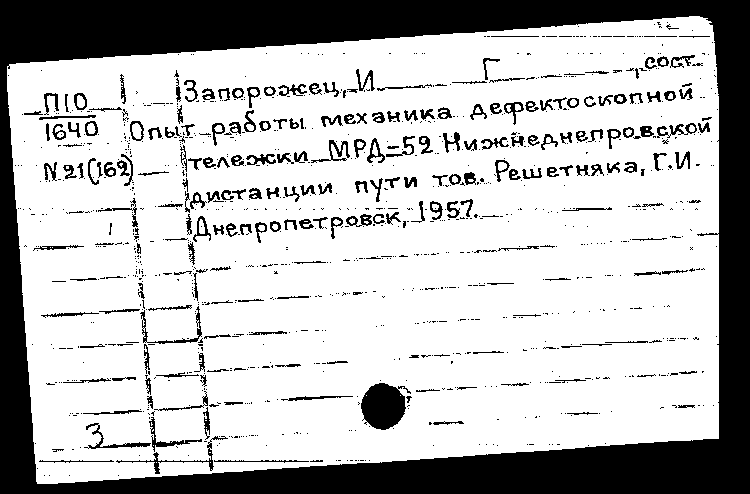 П10
1640
N21(162)
1
Запорожец, И Г , сост.
Опыт работы механика дефектоскопной
тележки МРД-52 Нижнеднепровской
дистанции пути тов. Решетняка, Г.И.
Днепропетровск, 1957.
3